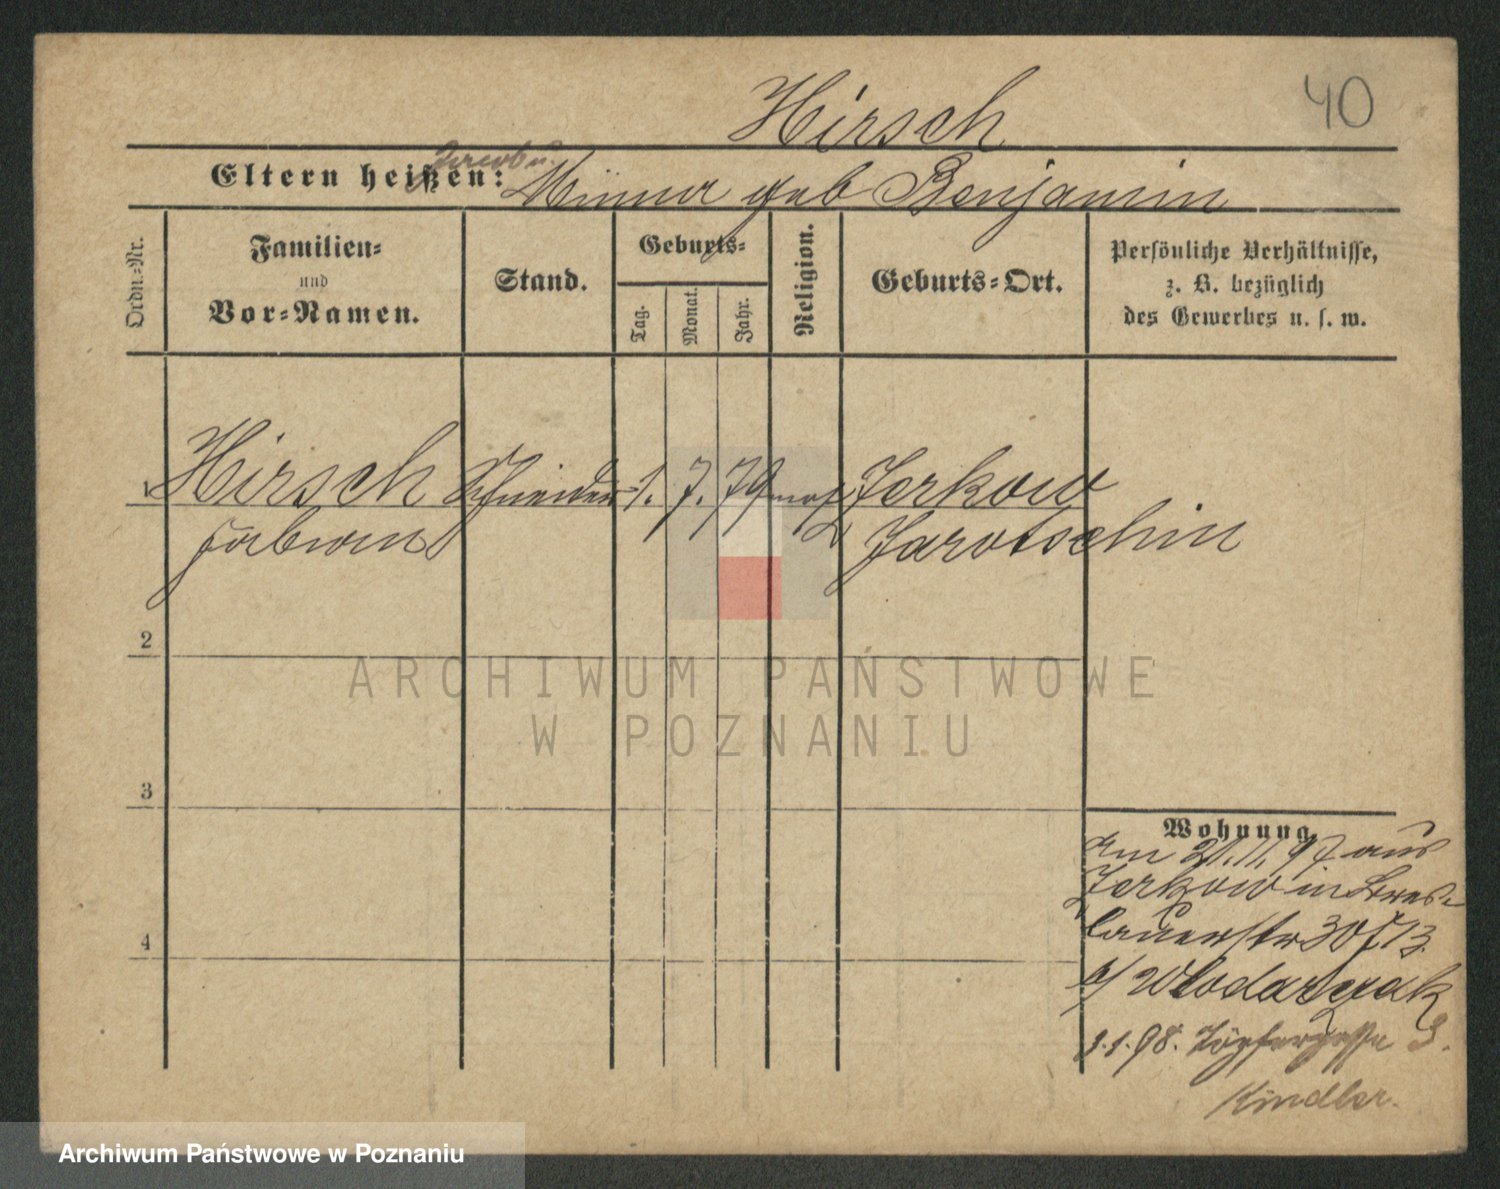 Hirsch
40
Jacob u.
Eltern heißen: Minna geb Benjamin
Ordn.-Nr.
Familien-
und
Vor-Namen.
Stand.
Geburts-
Tag.
Monat.
Jahr.
Religion.
Geburts-Ort.
Persönliche Verhältnisse,
z. B. bezüglich
des Gewerbes u. s. w.
1 Hirsch Schneider 1. 7. 79 mos Zerkow
Fabian Jarotschin
2
3
4
ARCHIWUM PAŃSTWOWE
W POZNANIU
Wohnung.
Am 21.11.97 aus
Zerkow in Bres-
lauerstr 30
b/ Wlodarczak
3.1.98. Töpfergasse 3.
Kindler.
Archiwum Państwowe w Poznaniu